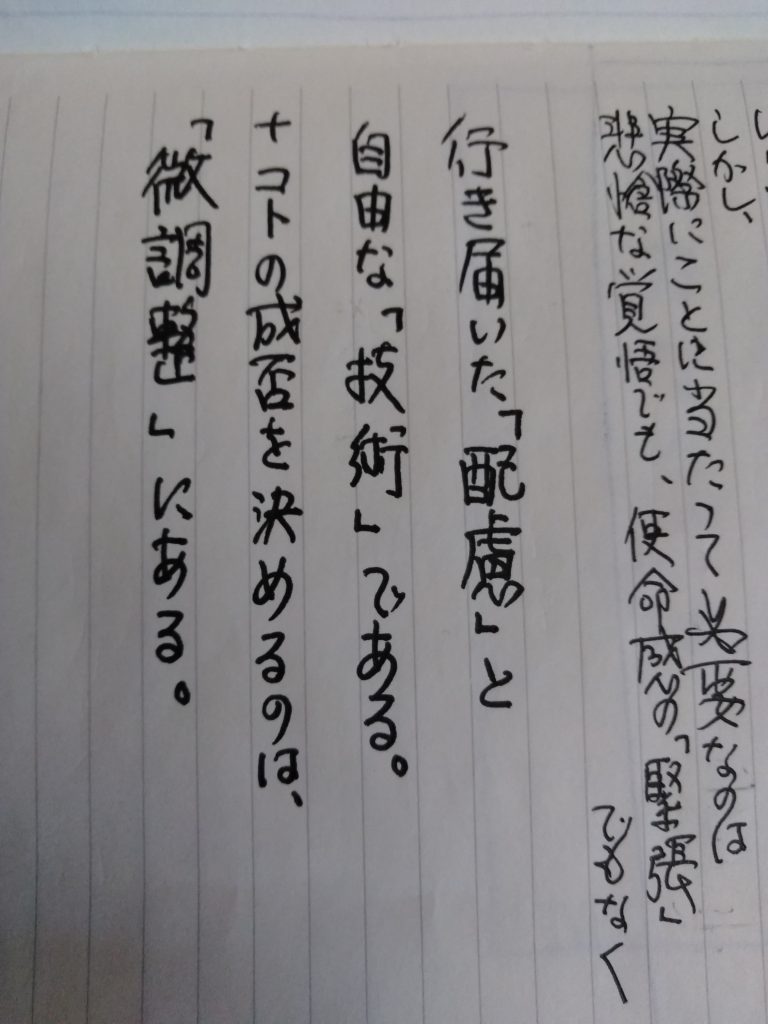 しかし、
実際にことに当たって必要なのは
悲愴な覚悟でも、使命感の「緊張」
でもなく
行き届いた「配慮」と
自由な「技術」である。
+コトの成否を決めるのは、
「微調整」にある。